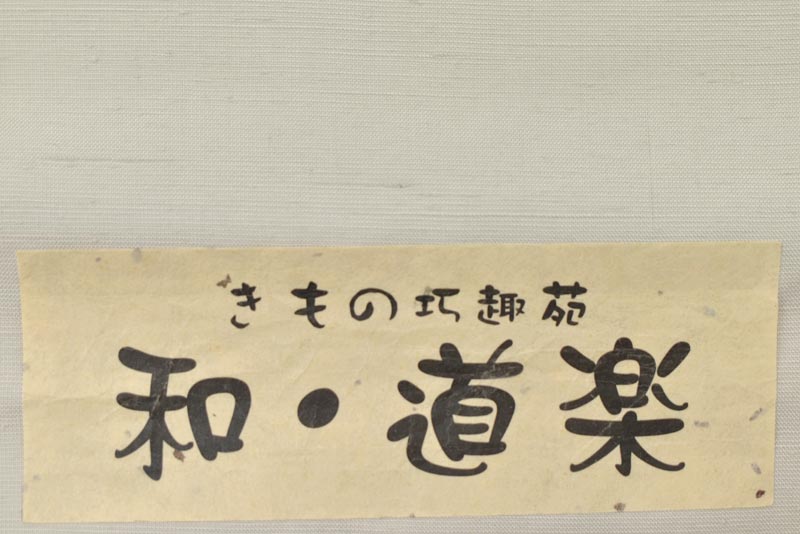 きもの巧趣苑
和・道楽